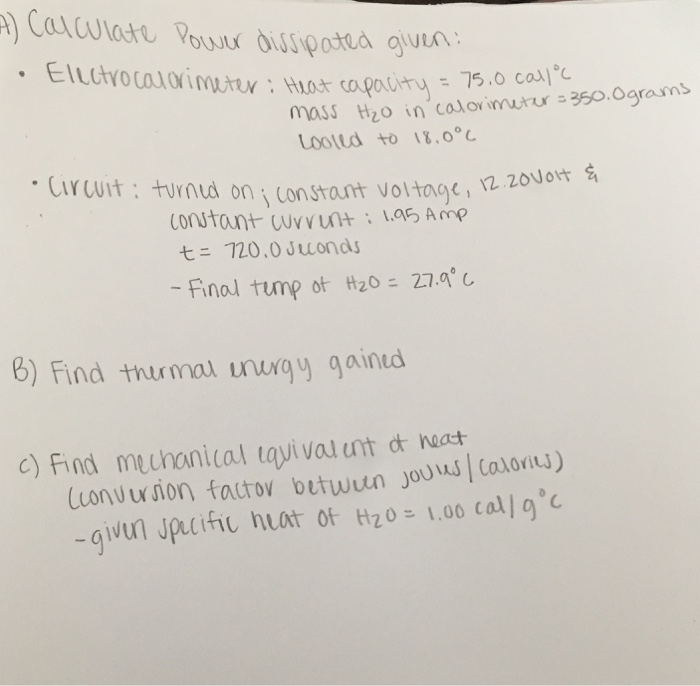 A) Calculate Power dissipated given:
• Electrocalorimeter: Heat capacity = 75.0 cal/°C
mass H2O in calorimeter = 350.0grams
Cooled to 18.0°C
• Circuit: turned on; constant voltage, 12.20Volt &
constant current: 1.95 Amp
t = 720.0 seconds
- Final temp of H2O = 27.9°C
B) Find thermal energy gained
C) Find mechanical equivalent of heat
(conversion factor between joules/calories)
- given specific heat of H2O = 1.00 cal/g°C